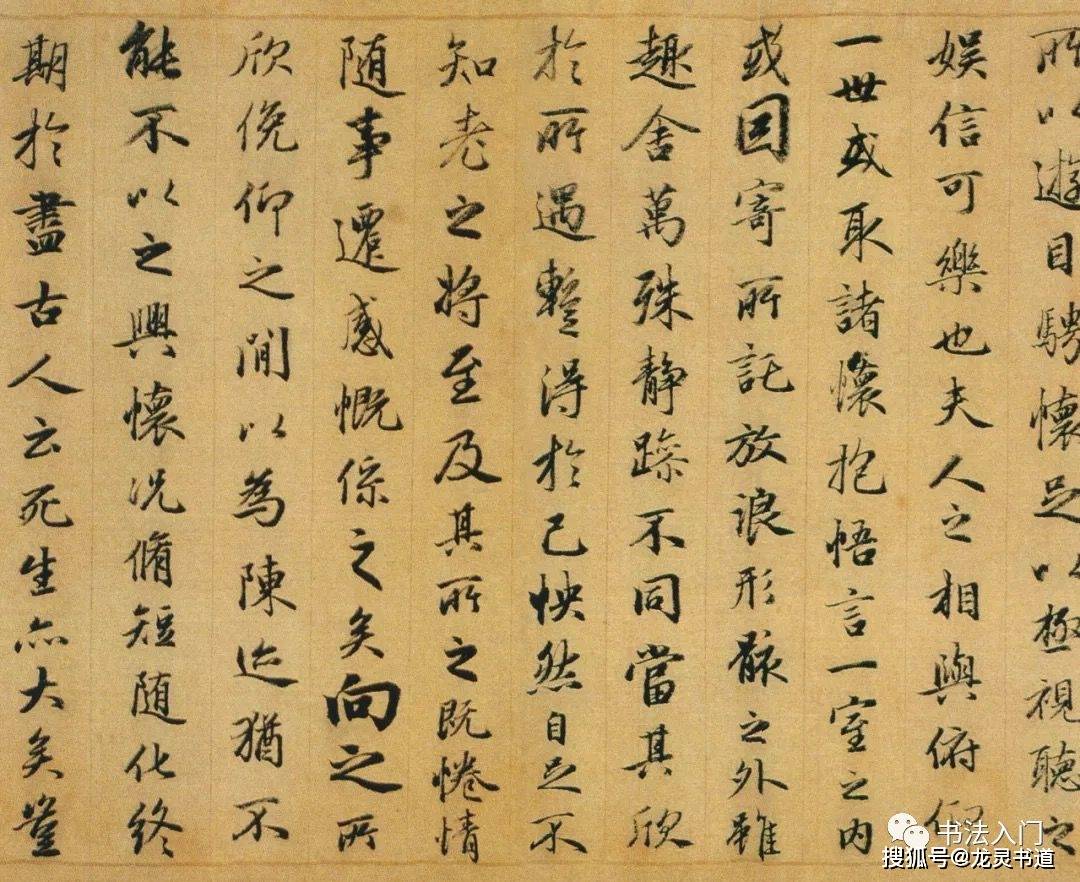 所以遊目騁懷足以極視聽之
娛信可樂也夫人之相與俯仰
一世或取諸懷抱悟言一室之内
或因寄所託放浪形骸之外雖
趣舍萬殊静躁不同當其欣
於所遇暫得於己怏然自足不
知老之將至及其所之既惓情
随事遷感慨係之矣向之所
欣俛仰之間以為陳迹猶不
能不以之興懷況脩短随化終
期於盡古人云死生亦大矣豈
书法入门
搜狐号@龙灵书道